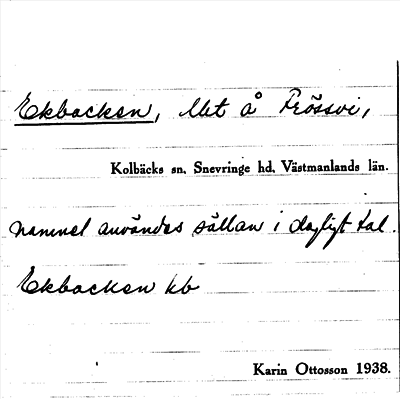 Ekbacken, lht å Frössvi,
Kolbäcks sn, Snevringe hd, Västmanlands län.
namnet användes sällan i dagligt tal.
Ekbacken kb
Karin Ottosson 1938.